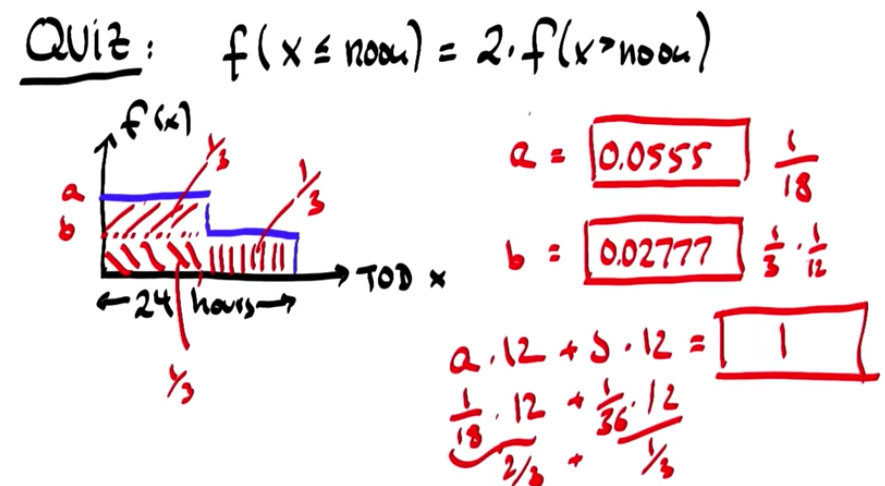 QUIZ: f(x ≤ noon) = 2·f(x>noon)
f(x)
1/3
1/3
a
b
TOD x
24 hours
1/3
a = 0.0555 1/18
b = 0.02777 1/3 · 1/12
a · 12 + b · 12 = 1
1/18 · 12 + 1/36 · 12
2/3 + 1/3